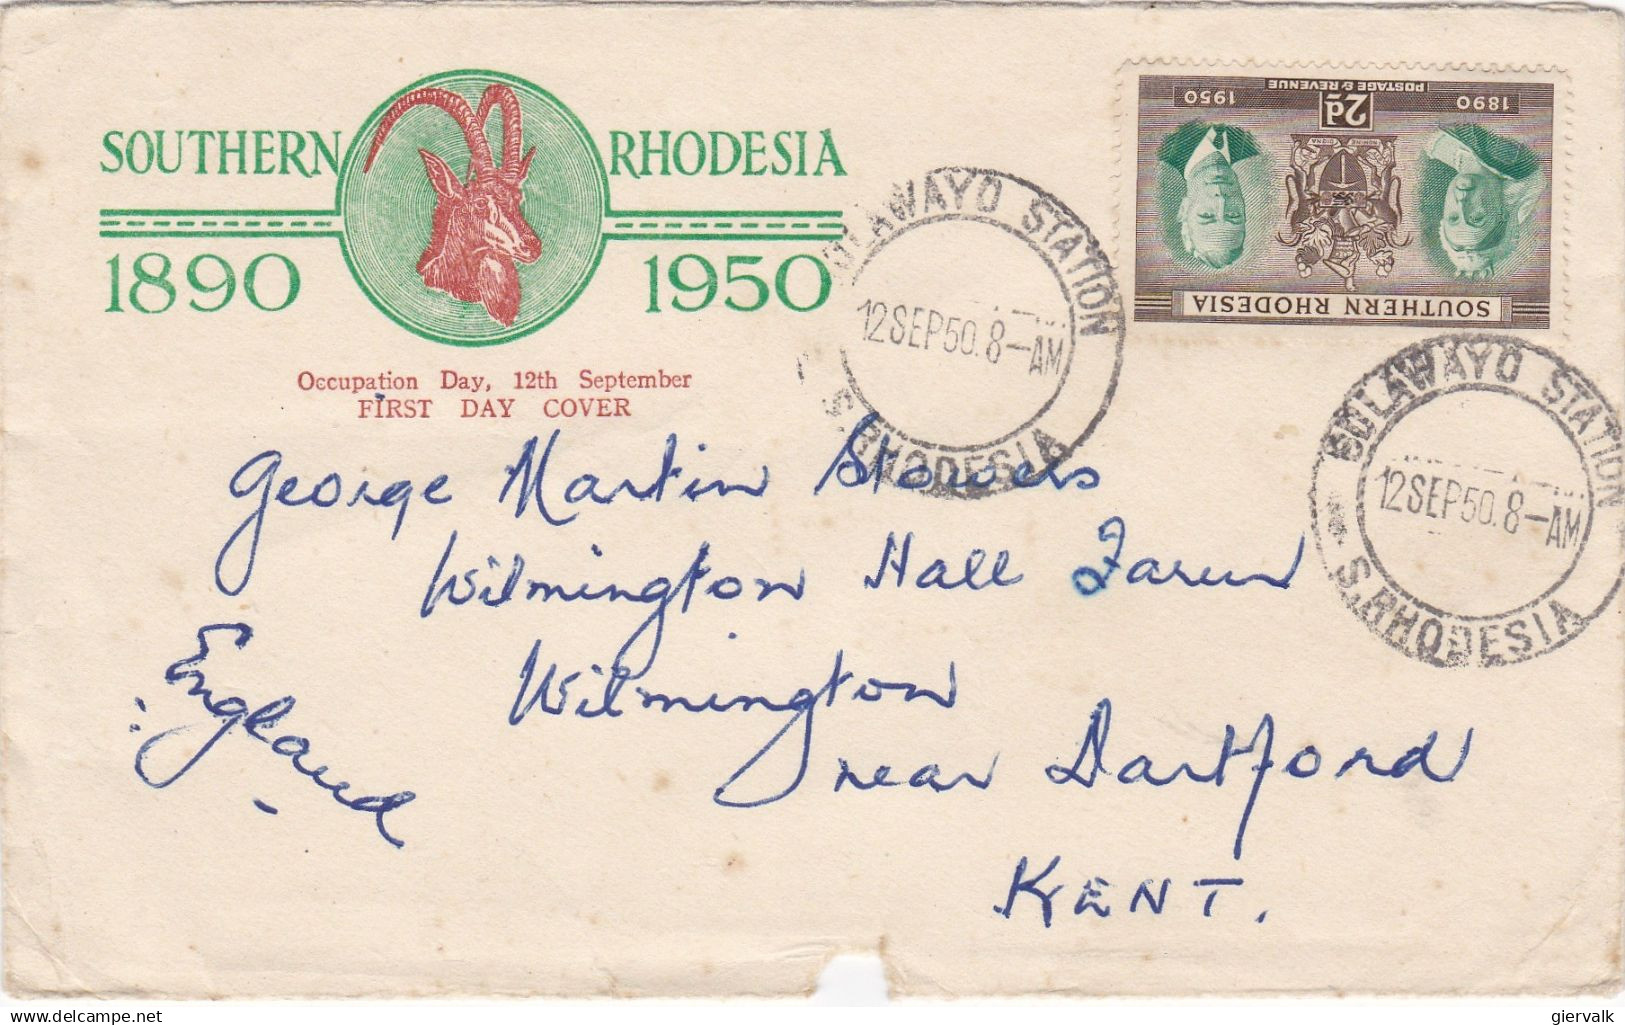 SOUTHERN RHODESIA
1890 1950
Occupation Day, 12th September
FIRST DAY COVER
POSTAGE & REVENUE
2d
1890 1950
SOUTHERN RHODESIA
BULAWAYO STATION
12 SEP 50. 8–AM
S. RHODESIA
BULAWAYO STATION
12 SEP 50. 8–AM
S. RHODESIA
George Martin Stowers
Wilmington Hall Farm
Wilmington
near Dartford
KENT.
England
delcampe.net
giervalk